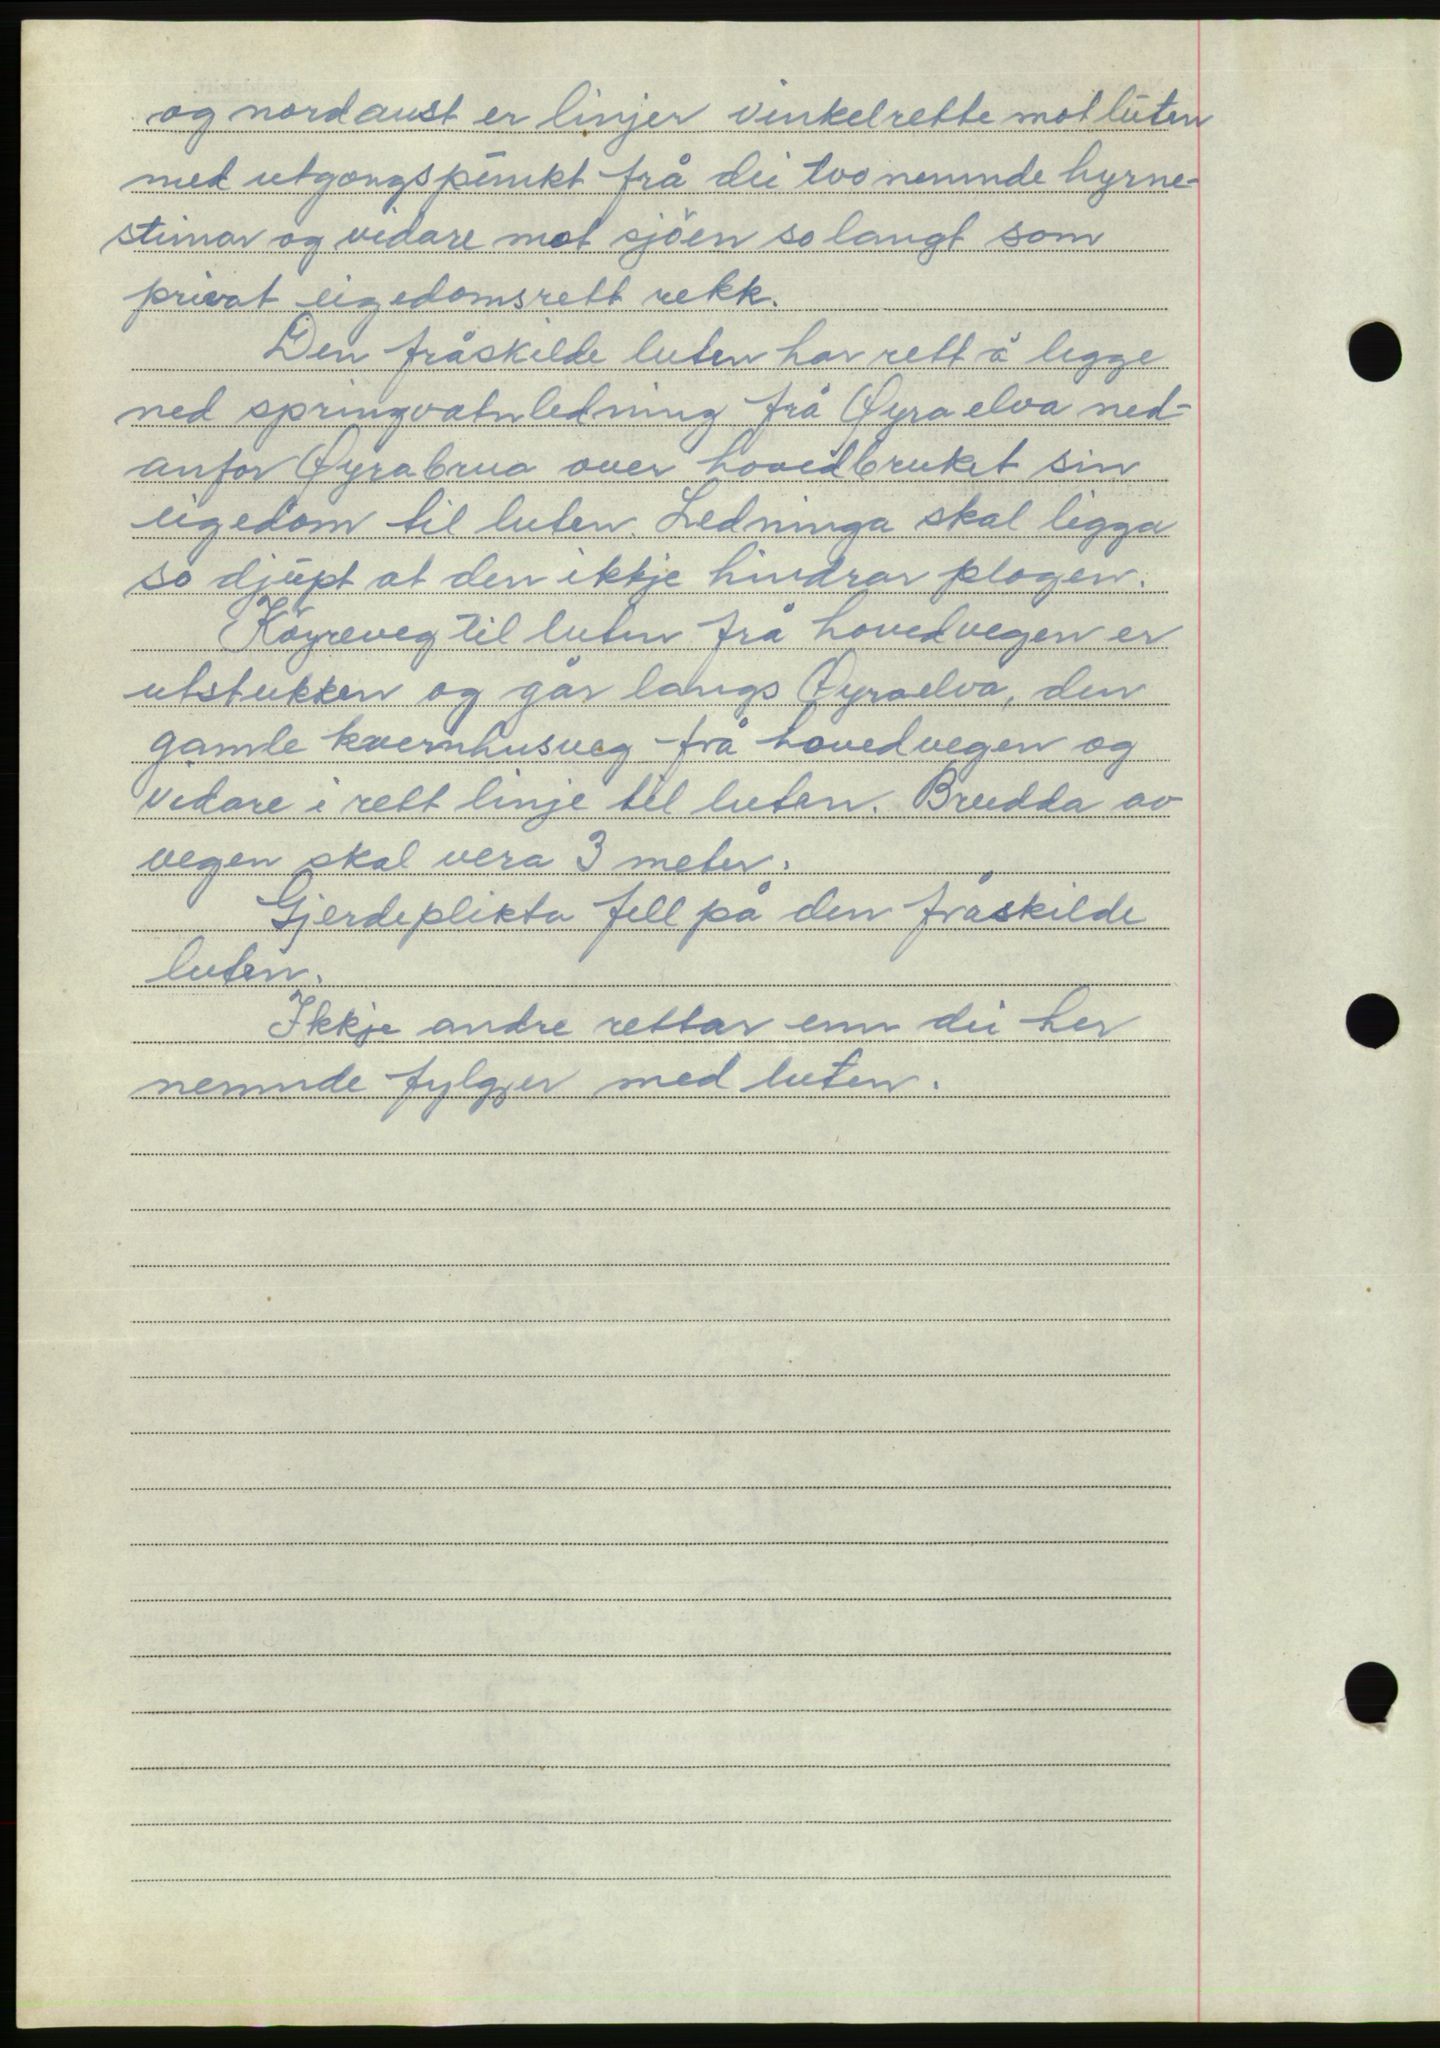 og nordaust er linjer vinkelrette mot luten
med utgongspunkt frå dei tvo nemnde hyrne-
steinar og vidare mot sjöen so langt som
privat eigedomsrett rekk.
Den fråskilde luten har rett å legge
ned springvatnledning frå Øyraelva ned-
anfor Øyrabrua over hovedbruket sin
eigedom til luten. Ledninga skal ligga
so djupt at den ikkje hindrar plogen.
Köyreveg til luten frå hovedvegen er
utstukken og går langs Øyraelva, den
gamle kvernhusveg frå hovedvegen og
vidare i rett linje til luten. Breidda av
vegen skal vera 3 meter.
Gjerdeplikta fell på den fråskilde
luten.
Ikkje andre rettar enn dei her
nemnde fylgjer med luten.